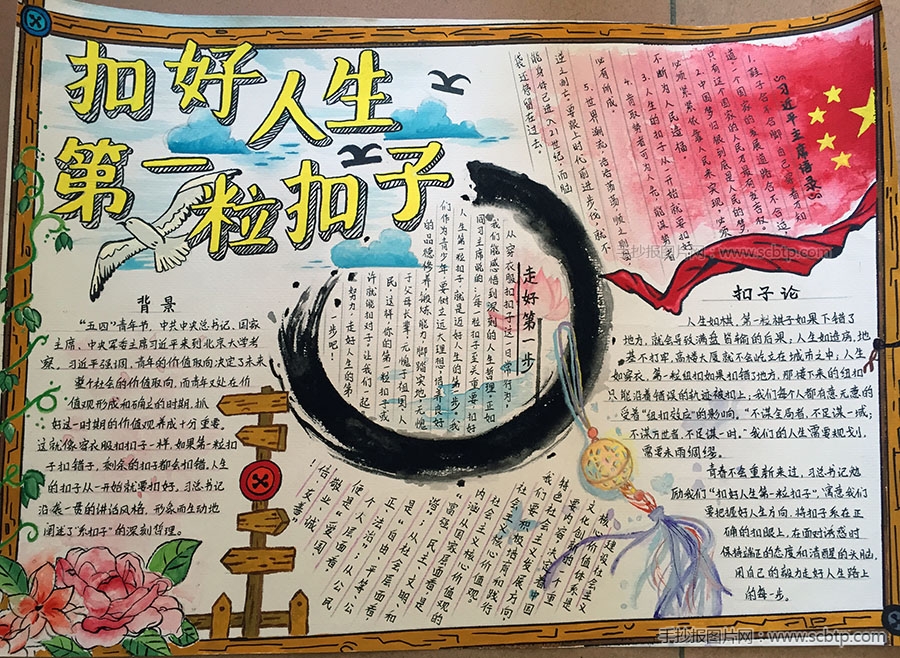 扣好人生
第一粒扣子
背景
“五四”青年节,中共中央总书记、国家
主席、中央军委主席习近平来到北京大学考
察,习近平强调,青年的价值取向决定了未来
整个社会的价值取向,而青年又处在价
值观形成和确立的时期,抓
好这一时期的价值观养成十分重要。
这就像穿衣服扣扣子一样,如果第一粒扣
子扣错了,剩余的扣子都会扣错,人生
的扣子从一开始就要扣好。习总书记
沿袭一贯的讲话风格,形象而生动地
阐述了“系扣子”的深刻哲理。
走好第一步
从穿衣服扣扣子这一日常行为,
我们能感悟到深刻的人生哲理,正如
习主席说的
人生第一粒扣子,就是迈好人生的第一步。我
们作为青少年,要树立远大理想,培养良好
的品德修养,锻炼能力,脚踏实地,无愧
于父母长辈,无愧于祖国人
民,这样你的第一粒扣子或
许就能扣对了,让我们一起
努力,走好人生的第
一步吧!
《习近平主席语录》
1、鞋子合不合脚,自己穿着才知
道,一个国家的发展道路合不合适,
只有这个国家的人民才最有发言权。
2、中国梦归根到底是人民的梦,
必须紧紧依靠人民来实现,必须
不断为人民造福。
3、人生的扣子从一开始就要扣好。
4、青年
必有所成。
5、世界潮流,浩浩荡荡,顺之则昌,
逆之则亡。要跟上时代前进步伐,就不
能身体已进入21世纪,而脑
袋还停留在过去。
扣子论
人生如棋,第一粒棋子如果下错了
地方,就会导致满盘皆输的后果;人生如造病,地
基不打牢,高楼大厦就不会屹立在城市之中;人生
如穿衣,第一粒纽扣如果扣错了地方,那接下来的纽扣
只能沿着错误的轨迹被扣上;我们每个人都有意无意的
受着“纽扣效应”的影响。“不谋全局者,不足谋一域;
不谋万世者,不足谋一时。”我们的人生需要规划,
需要未雨绸缪。
青春不能重新来过,习总书记勉
励我们“扣好人生第一粒扣子”,寓意我们
要把握好人生方向,将扣子系在正
确的扣眼上,在面对诱惑时
保持端正的态度和清醒的头脑,
用自己的毅力走好人生路上
的每一步。
社会主义核心价值观。
“富强、民主、文明、和
谐”是从国家层面看的
“自由、平等、公
正、法治”
“爱国、
敬业、诚
信、友善”
手抄报图片网:www.scbtp.com
手抄报图片网:www.scbtp.com